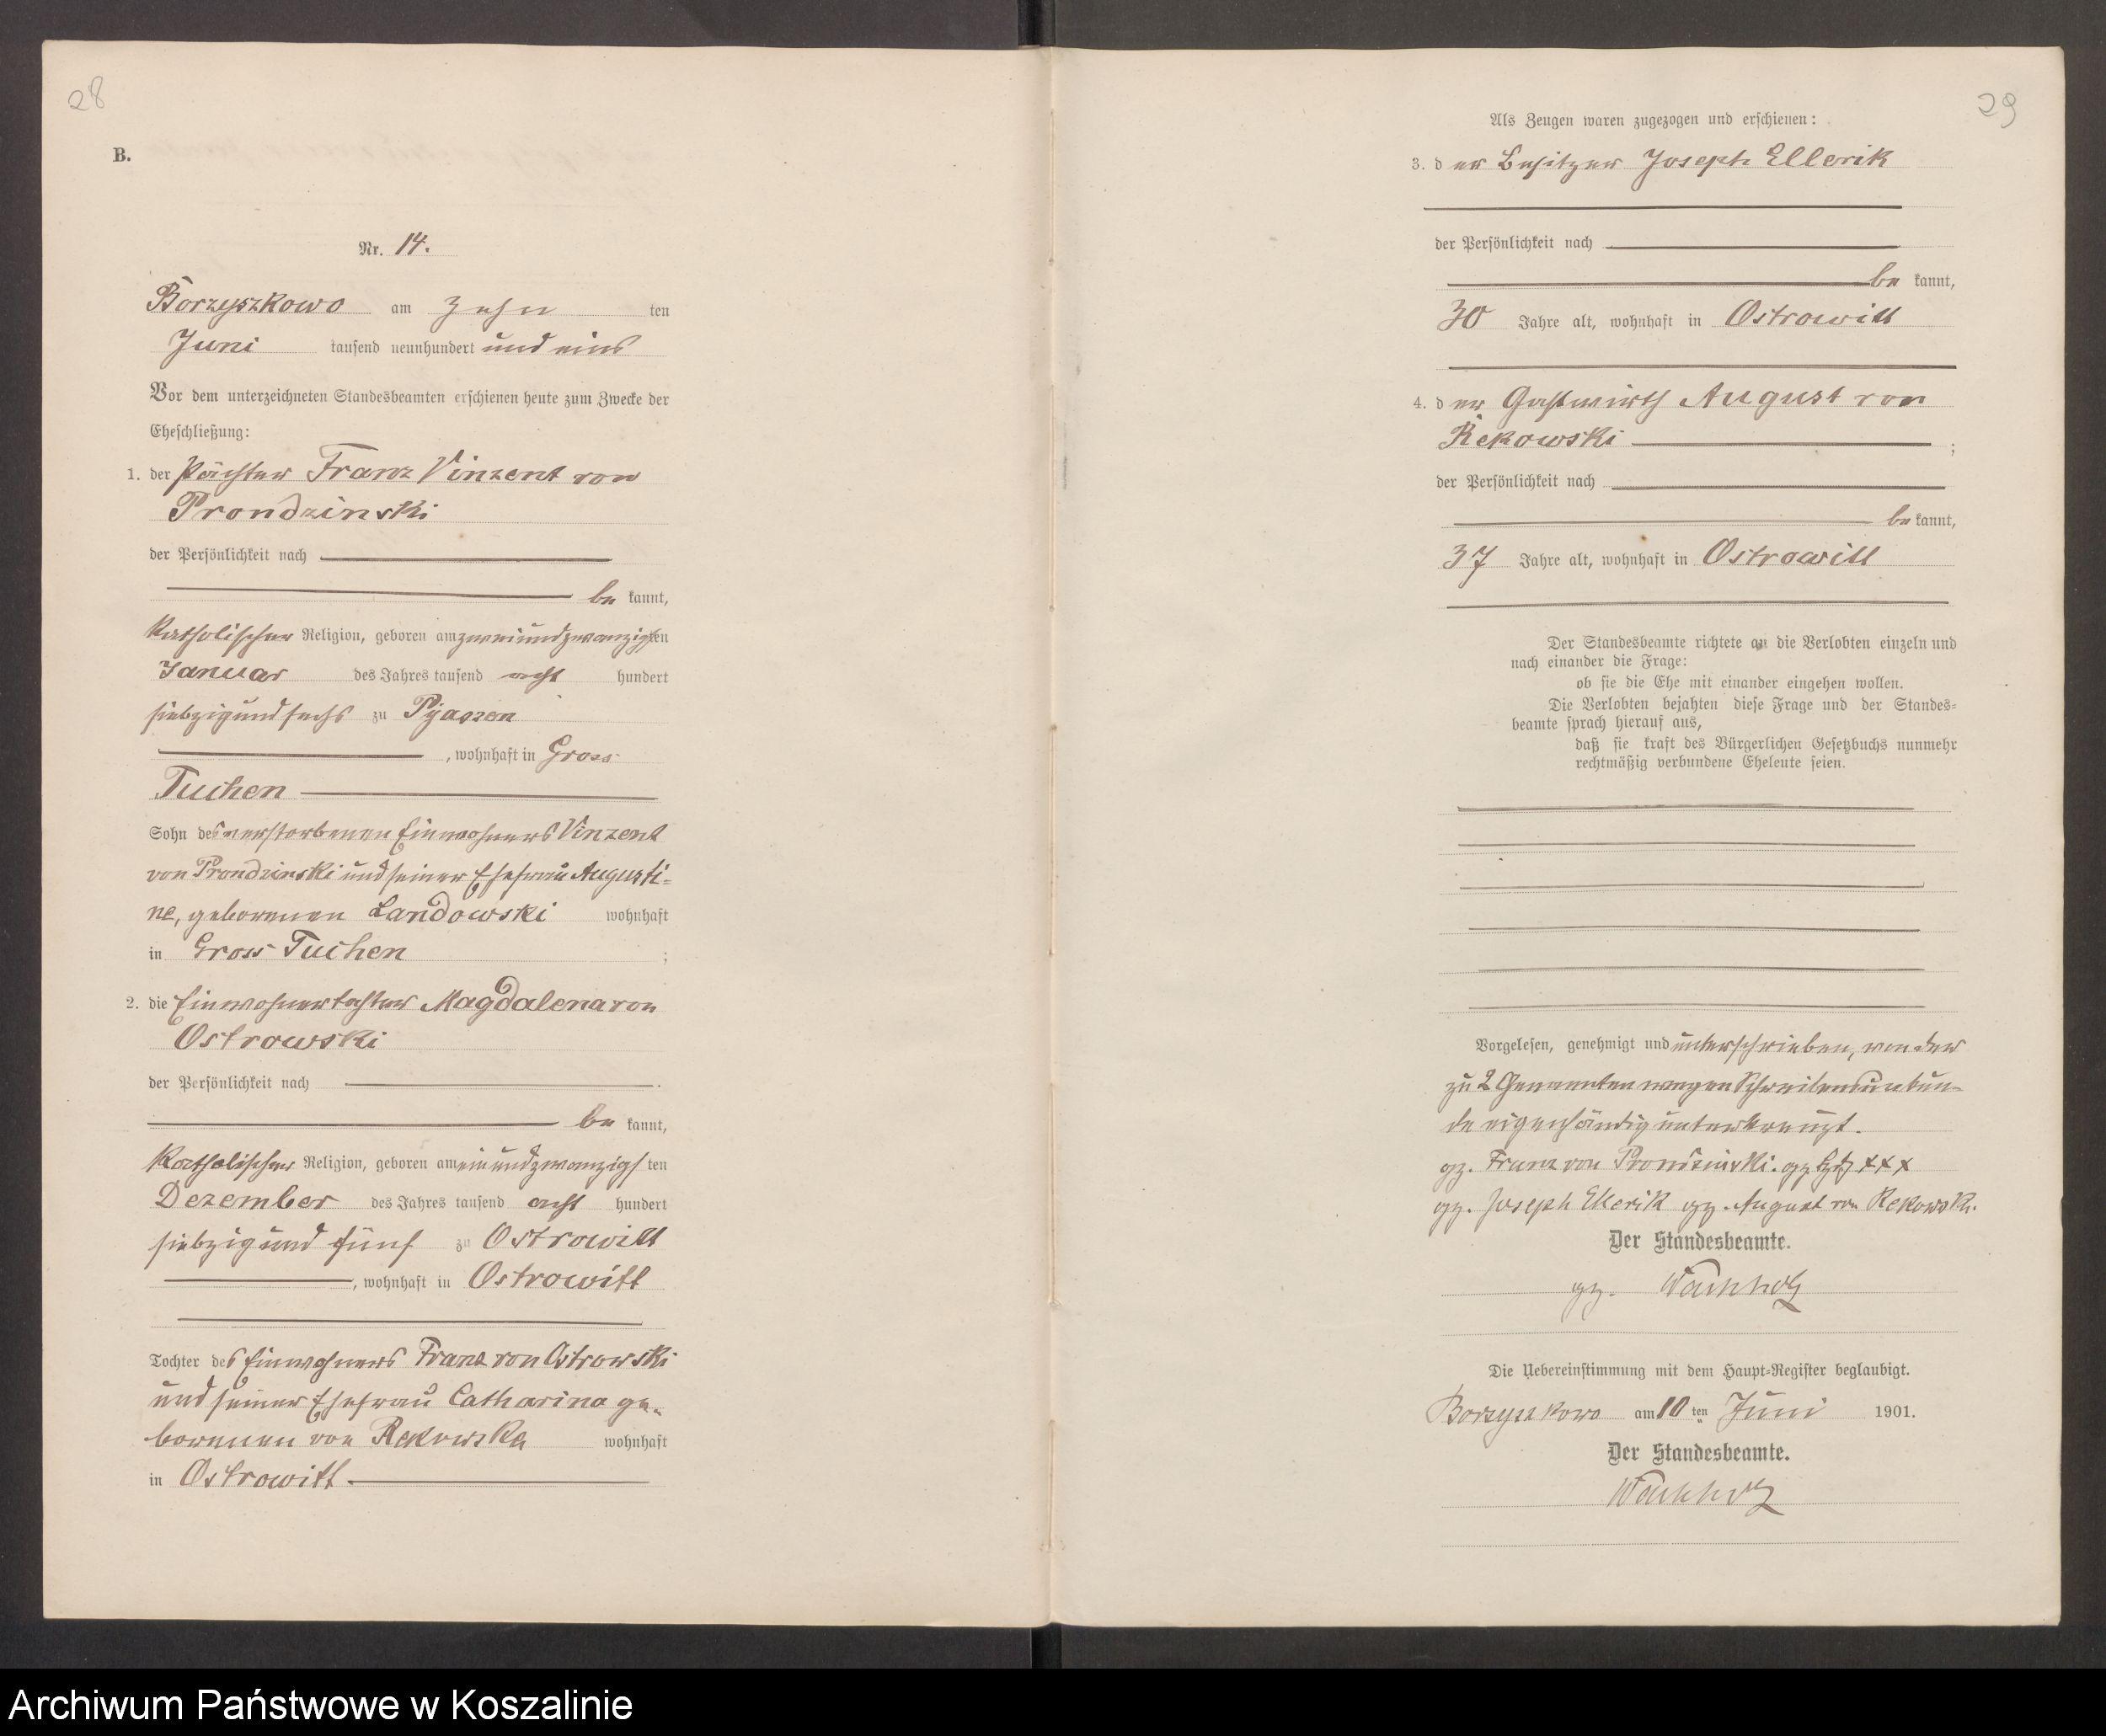 28
B.
Nr. 14.
Borzyszkowo am zehn ten
Juni tausend neunhundert und eins
Vor dem unterzeichneten Standesbeamten erschienen heute zum Zwecke der
Eheschließung:
1. der Pächter Franz Vinzent von
Prondzinski
der Persönlichkeit nach
be kannt,
katholischer Religion, geboren am zweiundzwanzigsten
Januar des Jahres tausend acht hundert
siebzig und sechs zu Pyaszen
, wohnhaft in Gross
Tuchen
Sohn des verstorbenen Einwohners Vinzent
von Prondzinski und seiner Ehefrau Augusti=
ne, geborenen Landowski wohnhaft
in Gross Tuchen ;
2. die Einwohnertochter Magdalena von
Ostrowski
der Persönlichkeit nach
be kannt,
katholischer Religion, geboren am einundzwanzigs ten
Dezember des Jahres tausend acht hundert
siebzig und fünf zu Ostrowitt
, wohnhaft in Ostrowitt
Tochter des Einwohners Franz von Ostrowski
und seiner Ehefrau Catharina ge-
borenen von Rekowska wohnhaft
in Ostrowitt.
29
Als Zeugen waren zugezogen und erschienen:
3. der Besitzer Joseph Ellerik
der Persönlichkeit nach
be kannt,
30 Jahre alt, wohnhaft in Ostrowitt
4. der Gastwirth August von
Rekowski ;
der Persönlichkeit nach
be kannt,
37 Jahre alt, wohnhaft in Ostrowitt
Der Standesbeamte richtete an die Verlobten einzeln und
nach einander die Frage:
ob sie die Ehe mit einander eingehen wollen.
Die Verlobten bejahten diese Frage und der Standes=
beamte sprach hierauf aus,
daß sie kraft des Bürgerlichen Gesetzbuchs nunmehr
rechtmäßig verbundene Eheleute seien.
Vorgelesen, genehmigt und unterschrieben, von der
zu 2 Genannten wegen Schreibensunkun-
de eigenhändig unterkreuzt.
gz. Franz von Prondzinski. gz. xxx
gz. Joseph Ellerik gz. August von Rekowski.
Der Standesbeamte.
gz. Wachholz
Die Uebereinstimmung mit dem Haupt=Register beglaubigt.
Borzyszkowo am 10 ten Juni 1901.
Der Standesbeamte.
Wachholz
Archiwum Państwowe w Koszalinie